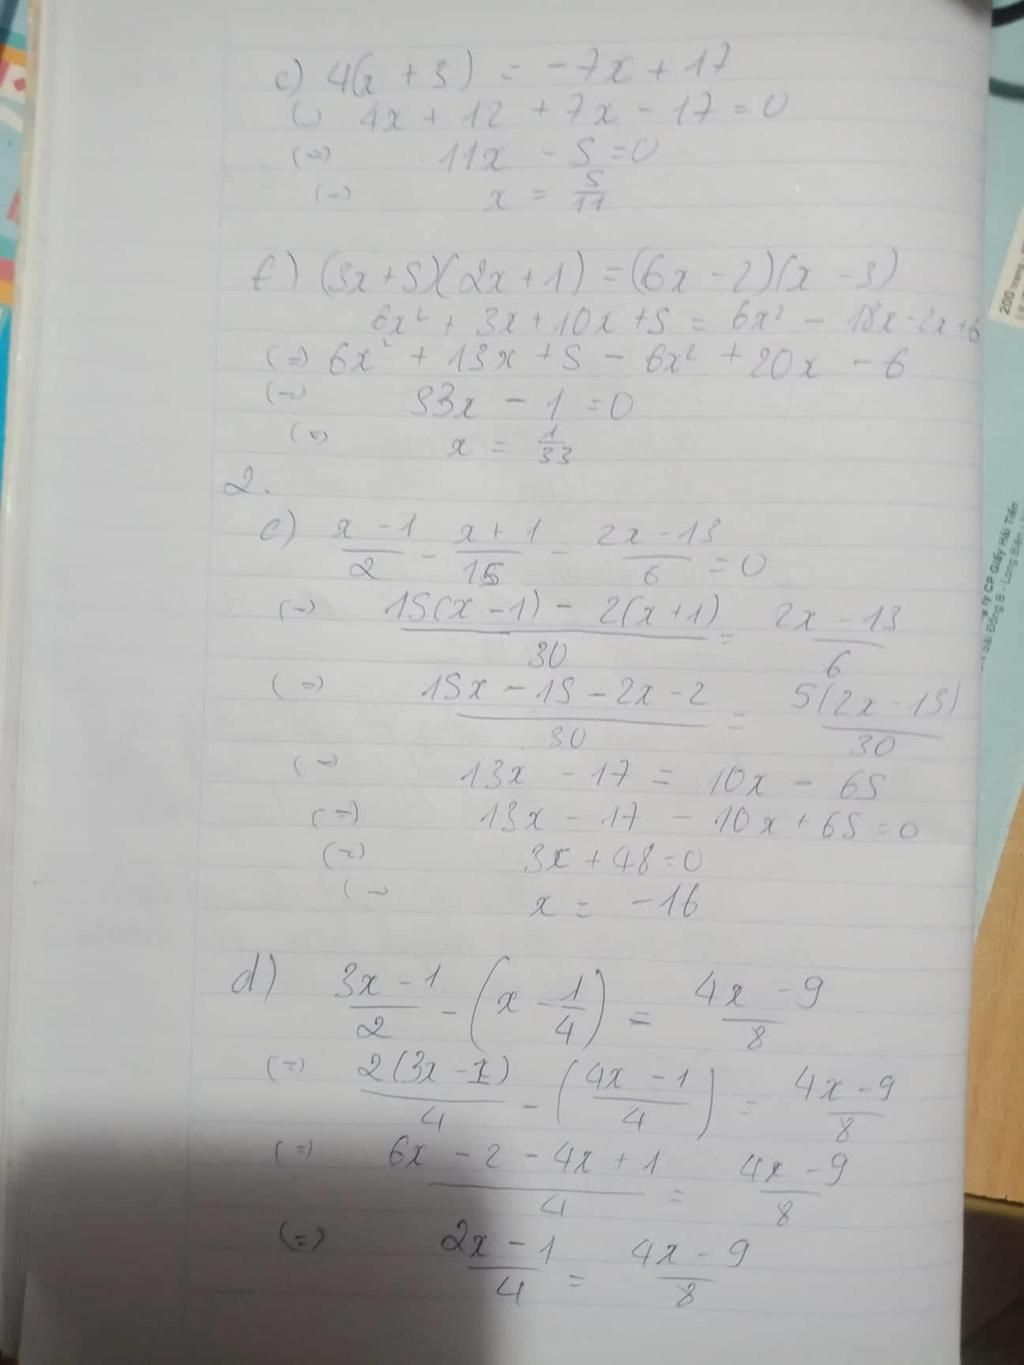 c) 4(x + 3) = -7x + 17
(=) 4x + 12 + 7x - 17 = 0
(=) 11x - 5 = 0
(=) x = 5/11
f) (3x+5)(2x+1) = (6x-2)(x-3)
6x² + 3x + 10x + 5 = 6x² - 18x - 2x + 6
(=) 6x² + 13x + 5 - 6x² + 20x - 6
(=) 33x - 1 = 0
(=) x = 1/33
2.
c) (x-1)/2 - (x+1)/15 - (2x-13)/6 = 0
(=) (15(x-1) - 2(x+1))/30 = (2x-13)/6
(=) (15x - 15 - 2x - 2)/30 = 5(2x-13)/30
(=) 13x - 17 = 10x - 65
(=) 13x - 17 - 10x + 65 = 0
(=) 3x + 48 = 0
(=) x = -16
d) (3x-1)/2 - (x - 1/4) = (4x-9)/8
(=) 2(3x-1)/4 - ((4x-1)/4) = (4x-9)/8
(=) (6x - 2 - 4x + 1)/4 = (4x-9)/8
(=) (2x-1)/4 = (4x-9)/8
200 trang
ty CP Giấy Hải Tiến
Sài Đồng B - Long Biên